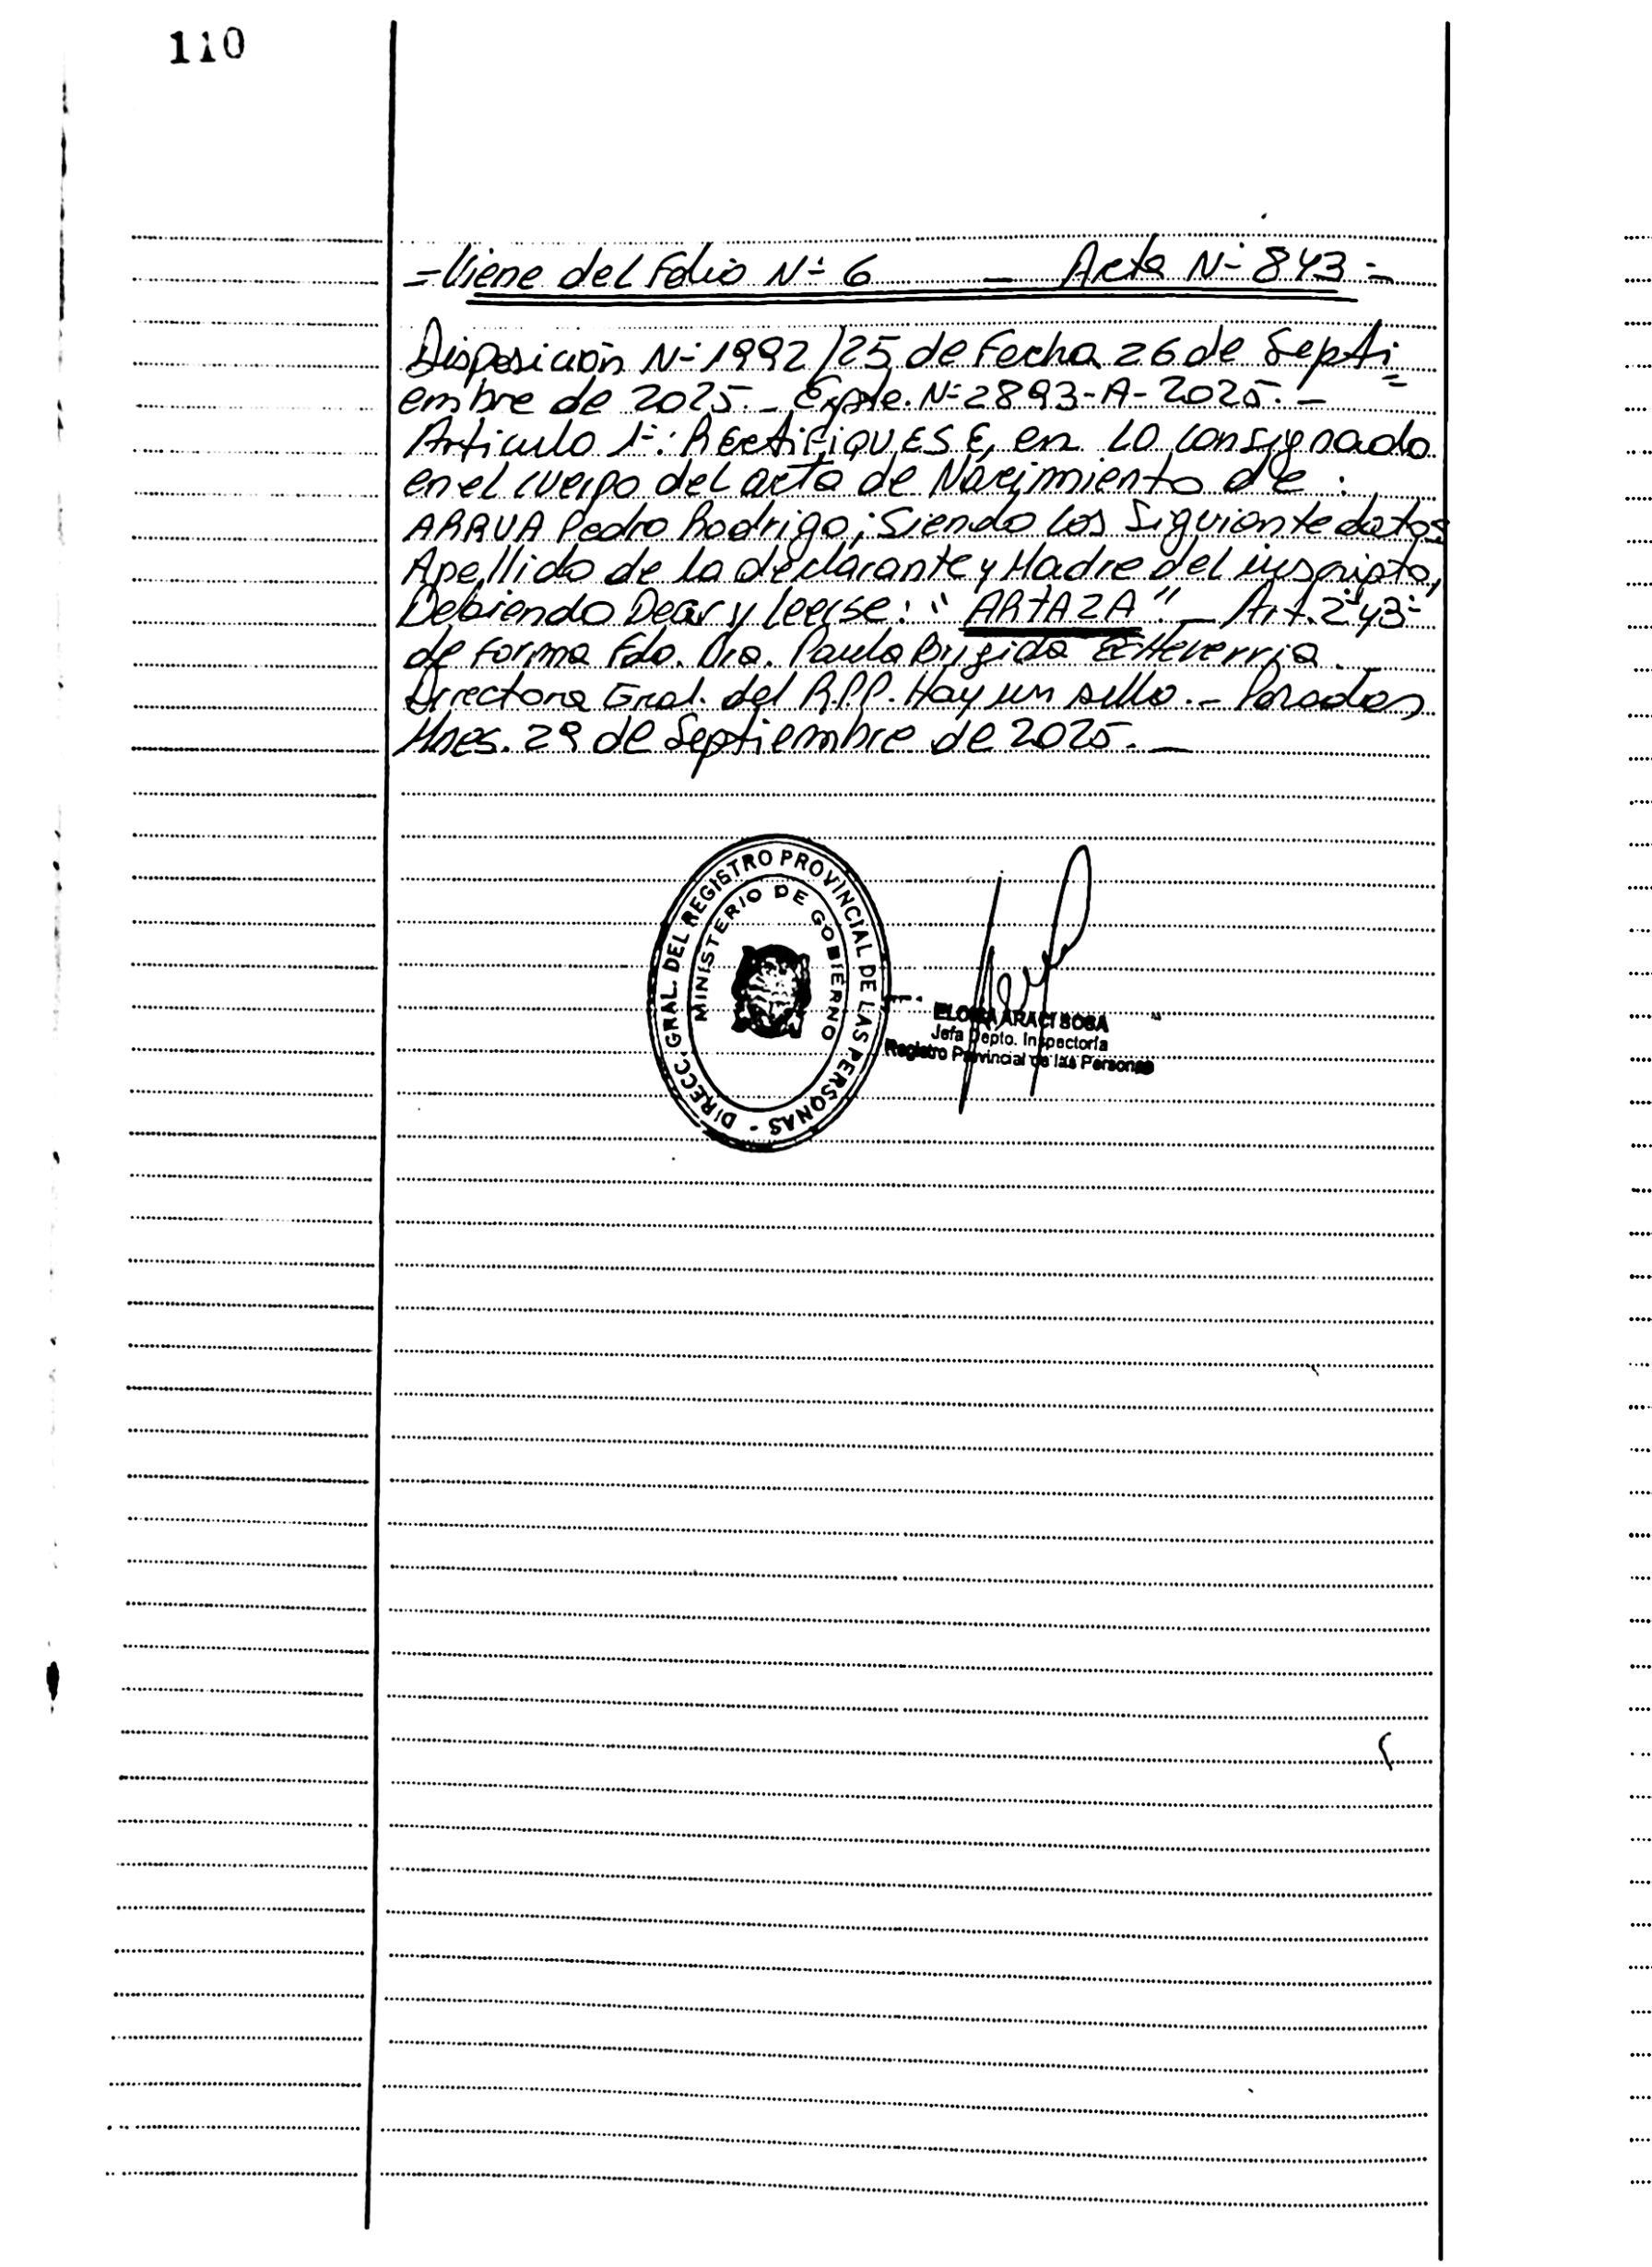 110
=Viene del Folio Nº 6 — Acta Nº 843=
Disposición Nº 1992/25 de Fecha 26 de Septi=
embre de 2025.- Expte. Nº 2893-A-2025.-
Articulo 1º: RECTIFIQUESE, en lo consignado
en el cuerpo del acta de Nacimiento de:
ARRUA Pedro Rodrigo; Siendo los Siguiente datos
Apellido de la declarante y Madre del inscripto,
Debiendo Decir y leerse: "ARTAZA" - Art. 2º y 3º
de Forma Fdo. Dra. Paula Brigida Etteverria.
Directora Gral. del R.P.P. Hay un sello.- Posadas
Mnes. 29 de Septiembre de 2025.-
DIRECC. GRAL. DEL REGISTRO PROVINCIAL DE LAS PERSONAS -
MINISTERIO DE GOBIERNO
ARACI SOSA
Jefa Depto. Inspectoría
Registro Provincial de las Personas